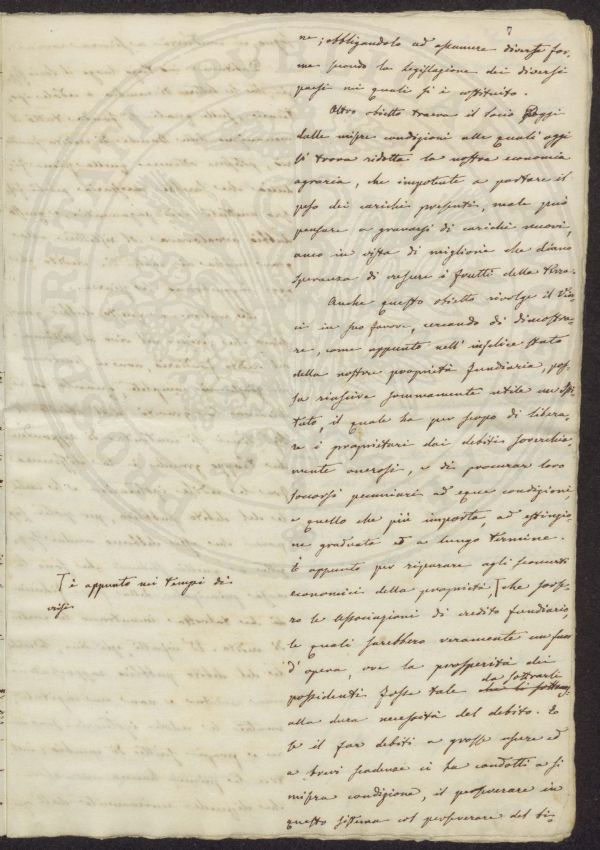 7
ne; obbligandolo ad assumere diverse for-
me secondo la legislazione dei diversi
paesi nei quali si è costituito.
Altro obietto traeva il Socio Poggi
dalle misere condizioni alle quali oggi
si trova ridotta la nostra economia
agraria, che impotente a portare il
peso dei carichi presenti, male può
pensare a gravarsi di carichi nuovi,
anco in vista di migliorie che diano
speranza di crescere i frutti della terra.
Anche questo obietto rivolge il
ci in suo favore, cercando di dimostra-
re, come appunto nell' infelice stato
della nostra proprietà fondiaria, pos-
sa riuscire sommamente utile un Isti-
tuto, il quale ha per scopo di libera-
re i proprietari dai debiti soverchia-
mente onerosi, e di procurar loro
soccorsi pecuniari ad eque condizioni,
e quello che più importa, ad estinzio-
ne graduata ed a lungo termine.
E appunto per riparare agli sconcerti
economici della proprietà, [che sorse-
ro le associazioni di credito fondiario,
le quali sarebbero veramente un fuor
d'opera, ove la prosperità dei
possidenti fosse tale da sottrarli
alla dura necessità del debito. E
se il far debiti a grosse usure ed
a brevi scadenze ci ha condotti a sì
misera condizione, il perseverare in
questo sistema col perseverare del bi-
[è appunto nei tempi di
crisi
PROPERI